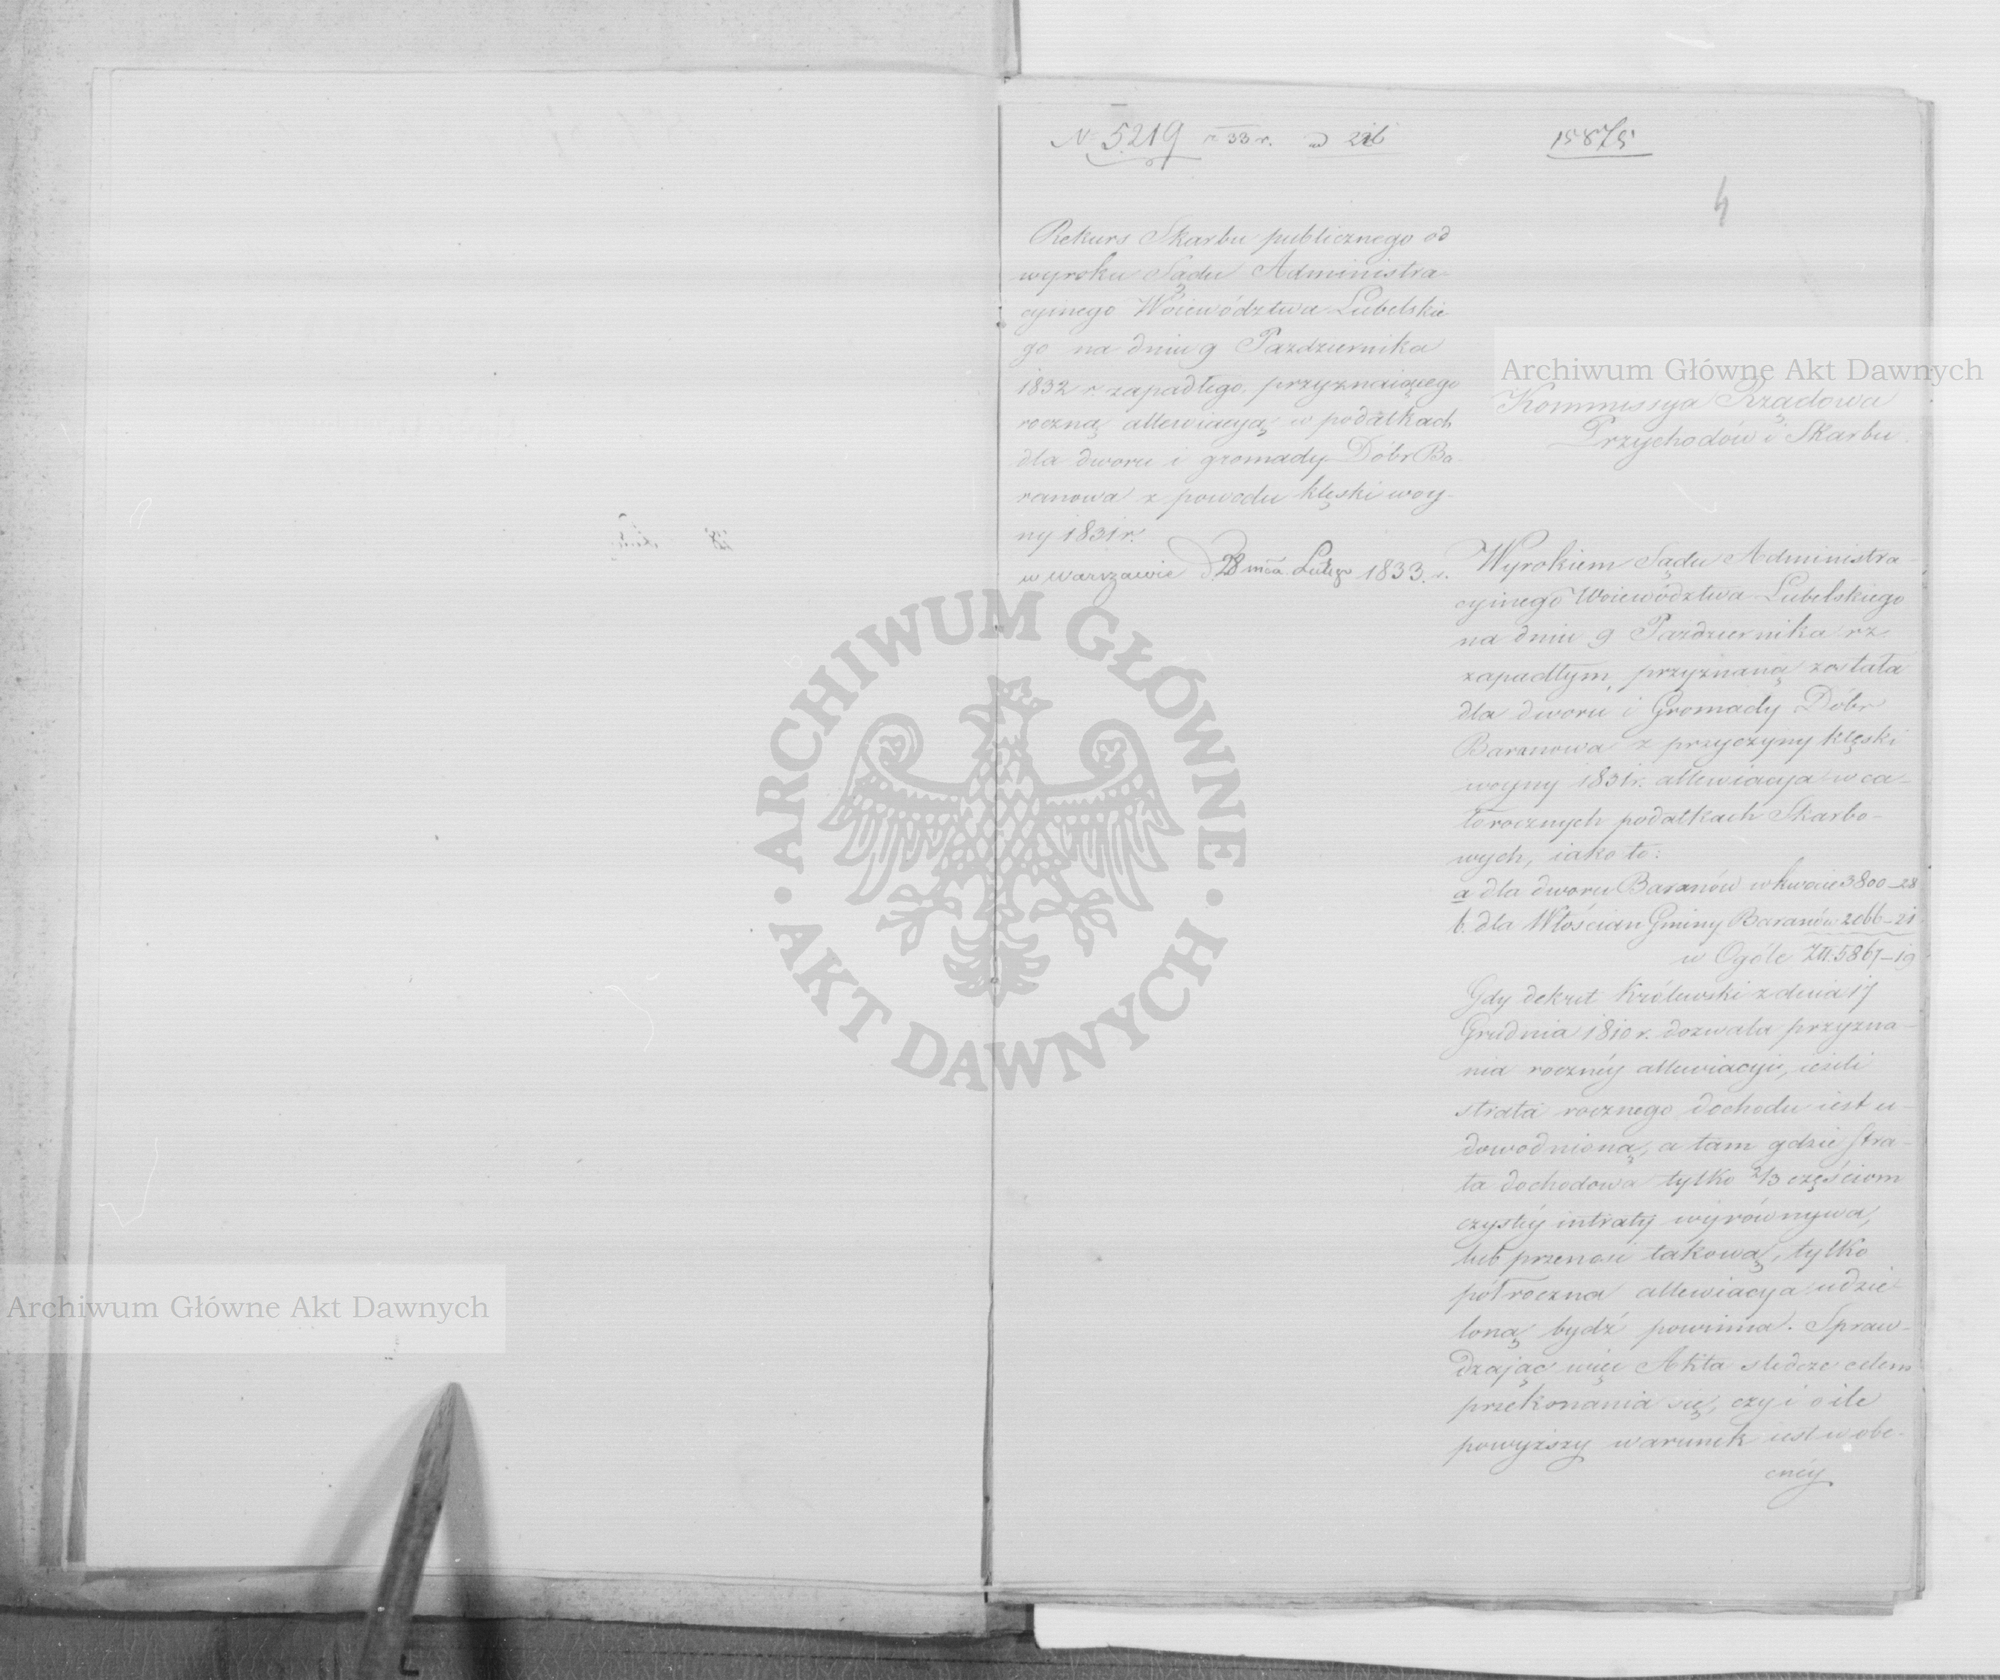 № 5219 r. 33 r. d 22/6
15875
4
Rekurs Skarbu publicznego od
wyroku Sądu Administra-
cyinego Woiewództwa Lubelskie
go na dniu 9 Pazdziernika
1832 r. zapadłego, przyznaiącego
roczną allewiacyą w podatkach
dla dworu i gromady Dóbr Ba-
ranowa z powodu klęski woy-
ny 1831 r.
w warszawie d 28 mca Lutego 1833. r.
Kommissya Rządowa
Przychodów i Skarbu.
Wyrokiem Sądu Administra-
cyinego Woiewództwa Lubelskiego
na dniu 9 Pazdziernika rz.
zapadłym, przyznaną została
dla dworu i Gromady Dóbr
Baranowa z przyczyny klęski
woyny 1831 r. allewiacya w ca-
łorocznych podatkach Skarbo-
wych, iako to:
a dla dworu Baranów w kwocie 3800-28
b. dla Włościan Gminy Baranów 2066-21
w Ogóle Złł. 5867-19
Gdy dekret Królewski z dnia 17
Grudnia 1810 r. dozwala przyzna-
nia rocznéy allewiacyi, ieżeli
strata rocznego dochodu iest u-
dowodnioną, a tam gdzie stra-
ta dochodowa tylko 2/3 częściom
czystéy intraty wyrównywa,
lub przenosi takową, tylko
półroczna allewiacya udzie
loną bydź powinna. Spraw-
dzając więc Akta śledcze celem
przekonania się, czy i o ile
powyższy warunek iest w obe-
cnéy
Archiwum Główne Akt Dawnych
Archiwum Główne Akt Dawnych
ARCHIWUM GŁÓWNE · AKT DAWNYCH ·